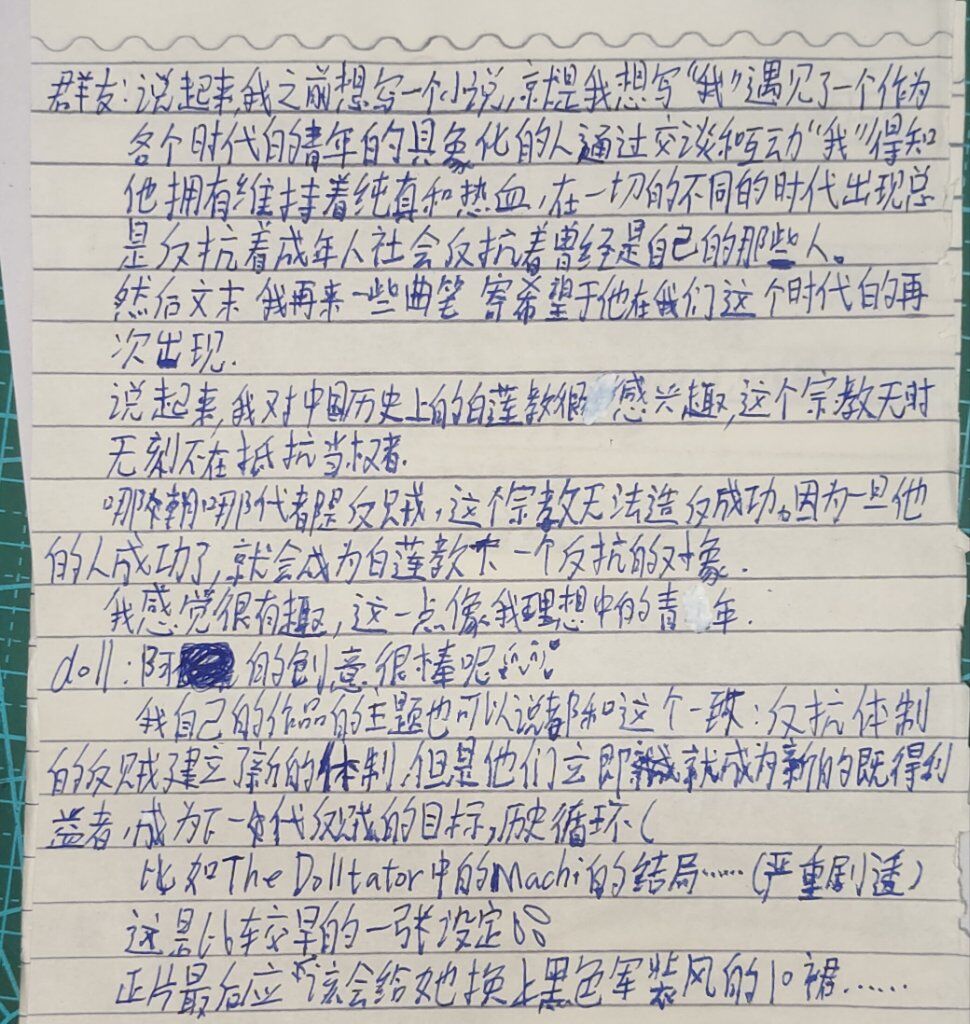 群友:说起来,我之前想写一个小说,就是我想写"我"遇见了一个作为
各个时代的青年的具象化的人通过交谈和互动"我"得知
他拥有维持着纯真和热血,在一切的不同的时代出现总
是反抗着成年人社会反抗着曾经是自己的那些人。
然后文末 我再来一些曲笔 寄希望于他在我们这个时代的再
次出现.
说起来,我对中国历史上的白莲教很感兴趣,这个宗教无时
无刻不在抵抗当权者.
哪朝哪代都是反贼,这个宗教无法造反成功。因为一旦他
的人成功了,就会成为白莲教下一个反抗的对象.
我感觉很有趣,这一点像我理想中的青年.
doll:阿 的创意很棒呢
我自己的作品的主题也可以说都和这个一致:反抗体制
的反贼建立了新的体制,但是他们立即就成为新的既得利
益者,成为下一代反贼的目标,历史循环(
比如The Dolltator中的Machi的结局……(严重剧透)
这是比较早的一张设定
正片最后应该会给她换上黑色军装风的lo裙……